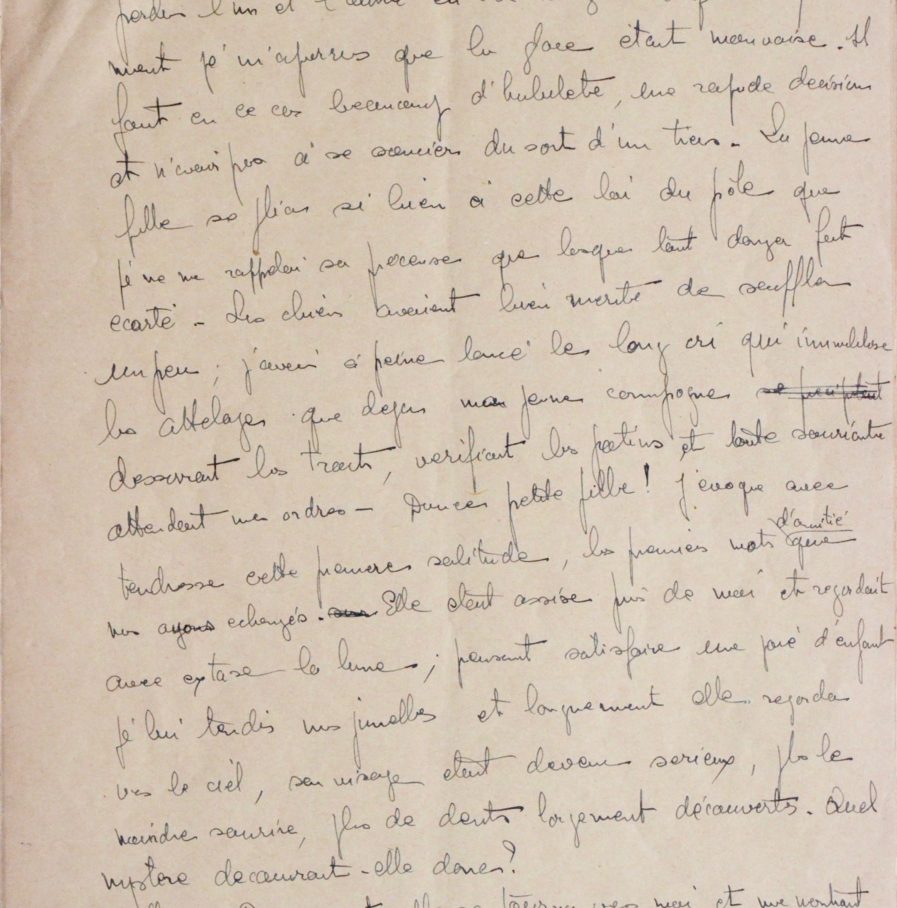 perdu l'un et l'autre en
ment je m'aperçus que la glace était mauvaise. Il
faut en ce cas beaucoup d'habileté, une rapide decision
et n'avoir pas à se soucier du sort d'un tiers - La jeune
fille se plia si bien à cette loi du pôle que
je ne me rappelai sa presence que lorsque tout danger fut
ecarté - Les chiens avaient bien merité de souffler
un peu ; j'avais à peine lancé le long cri qui immobilise
les attelages que deja ma jeune compagne se precipitant
desserrant les traits, verifiant les patins et toute souriante
attendent mes ordres - Douce petite fille ! j'evoque avec
tendresse cette premiere solitude, les premiers mots d'amitié que
nous ayons echangés. Elle etait assise près de moi et regardait
avec extase la lune ; pensant satisfaire une joie d'enfant
je lui tendis mes jumelles et longuement elle regarda
vers le ciel, son visage etait devenu serieux, plus le
moindre sourire, plus de dents largement découvertes. Quel
mystère decouvrait-elle donc ?
vers moi et me montrant